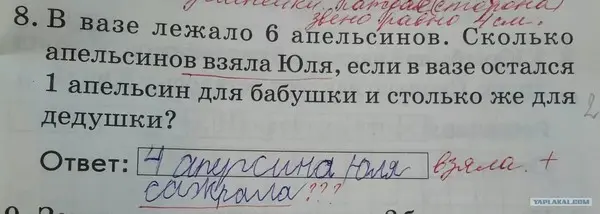 сторона
звено равно 4 см.
8. В вазе лежало 6 апельсинов. Сколько
апельсинов взяла Юля, если в вазе остался
1 апельсин для бабушки и столько же для
дедушки?
2
Ответ: 4 апурсина Юля взяла. +
сажрала ???
YAPLAKAL.COM